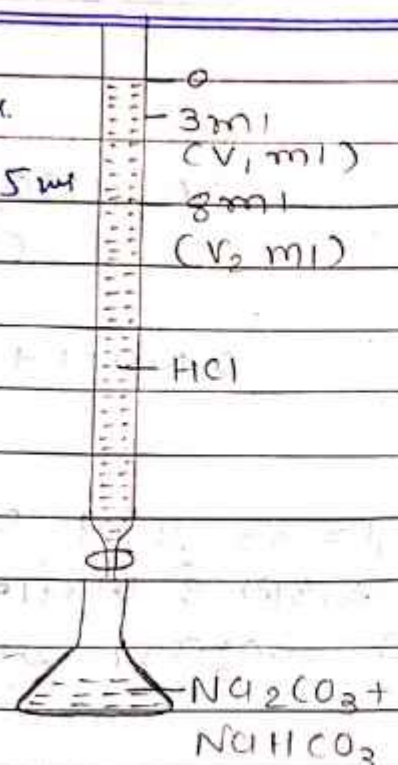 0
3ml
(V, ml)
5 ml
8ml
(V₂ ml)
HCl
Na₂CO₃+
NaHCO₃